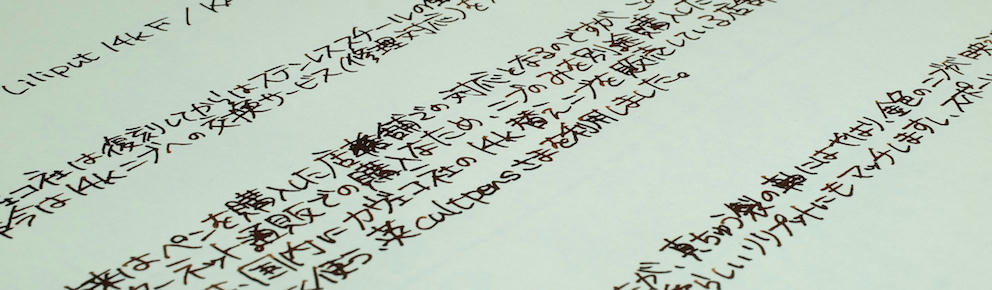 Liliput 14k F /
ェコ社は復刻してからはステンレススチールの
今は14kニブへの交換サービス(修理対応)を
来はペンを購入した店舗での対応となるのですが
ターネット通販での購入なため、ニブのみを別途購入した
国内にカヴェコ社の14k替えニブを販売している店
く使う cultpensさまを利用しました。
が、真ちゅう製の軸にはやはり金色のニブが映
らしいリリプットにもマッチしますし、スペ